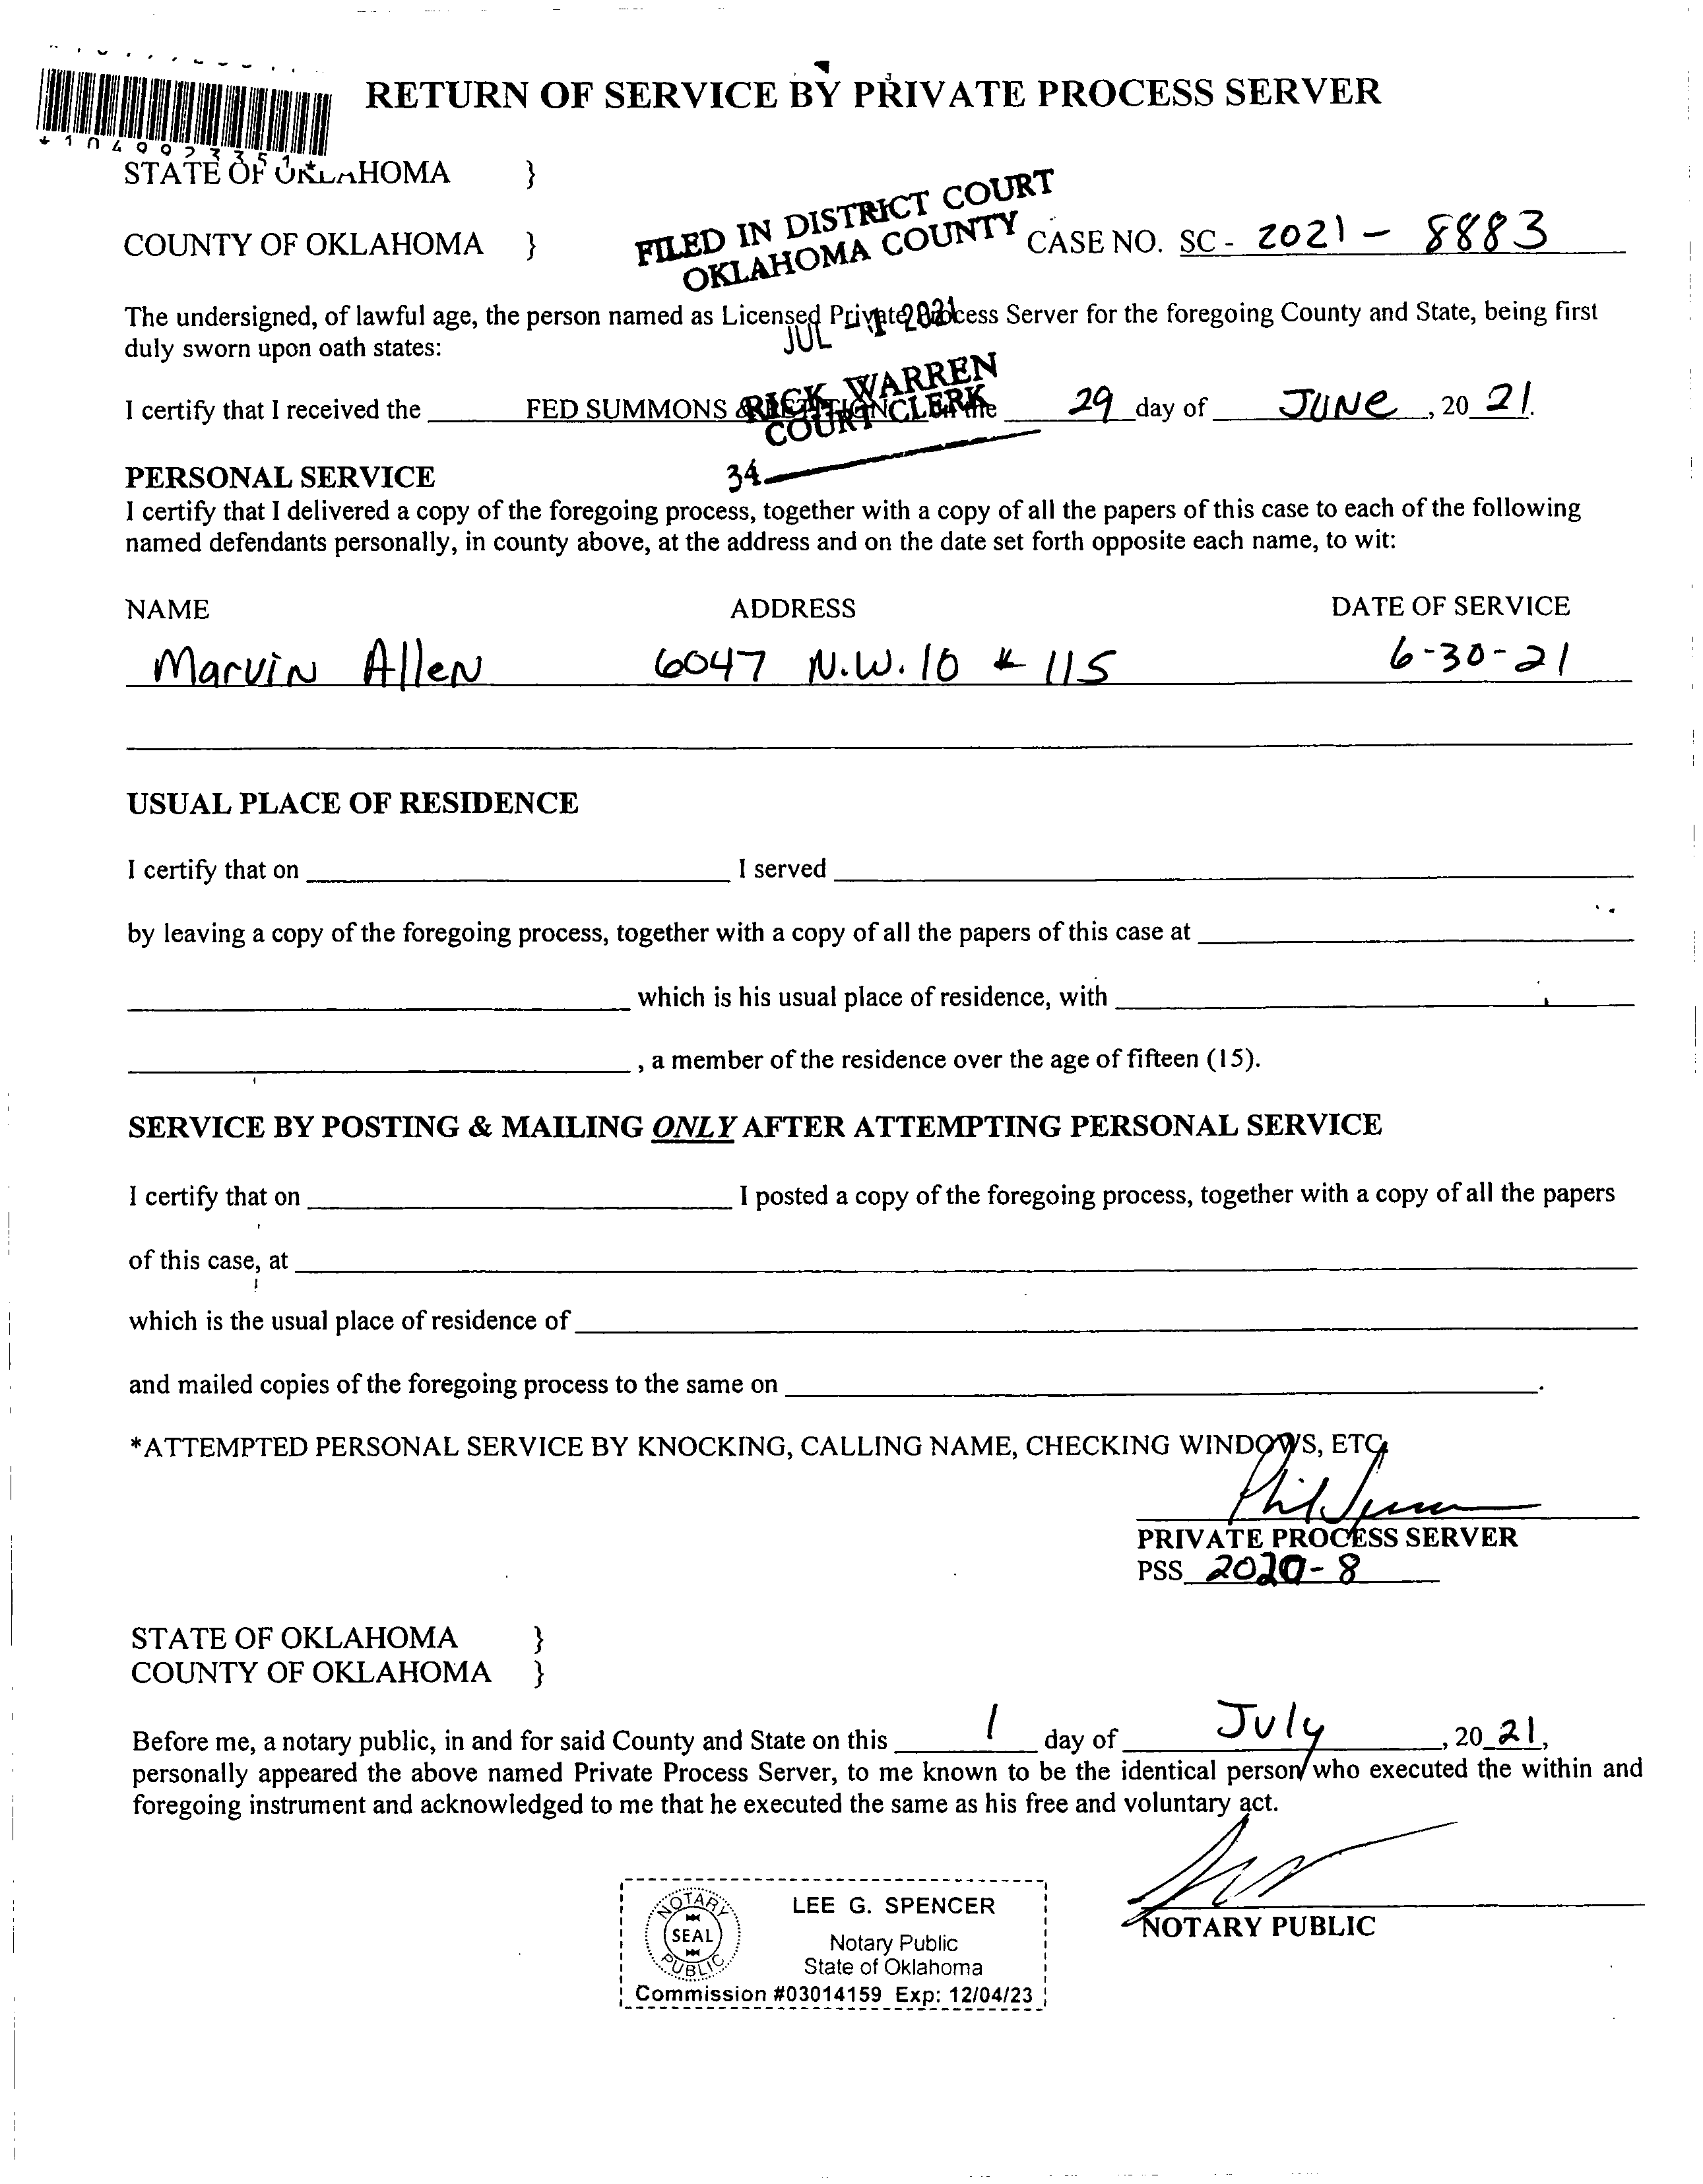 RETURN OF SERVICE BY PRIVATE PROCESS SERVER
*1049923351*
STATE OF OKLAHOMA }
FILED IN DISTRICT COURT
OKLAHOMA COUNTY
COUNTY OF OKLAHOMA } CASE NO. SC - 2021 - 8883
The undersigned, of lawful age, the person named as Licensed Private Process Server for the foregoing County and State, being first
duly sworn upon oath states:
JUL - 1 2021
RICK WARREN
COURT CLERK
I certify that I received the FED SUMMONS & PETITION on the 29 day of JUNE, 20 21.
34
PERSONAL SERVICE
I certify that I delivered a copy of the foregoing process, together with a copy of all the papers of this case to each of the following
named defendants personally, in county above, at the address and on the date set forth opposite each name, to wit:
NAME ADDRESS DATE OF SERVICE
Marvin Allen 6047 N.W. 10 # 115 6-30-21
USUAL PLACE OF RESIDENCE
I certify that on I served
by leaving a copy of the foregoing process, together with a copy of all the papers of this case at
which is his usual place of residence, with
, a member of the residence over the age of fifteen (15).
SERVICE BY POSTING & MAILING ONLY AFTER ATTEMPTING PERSONAL SERVICE
I certify that on I posted a copy of the foregoing process, together with a copy of all the papers
of this case, at
which is the usual place of residence of
and mailed copies of the foregoing process to the same on .
*ATTEMPTED PERSONAL SERVICE BY KNOCKING, CALLING NAME, CHECKING WINDOWS, ETC
PRIVATE PROCESS SERVER
PSS 2020-8
STATE OF OKLAHOMA }
COUNTY OF OKLAHOMA }
Before me, a notary public, in and for said County and State on this 1 day of July, 20 21,
personally appeared the above named Private Process Server, to me known to be the identical person who executed the within and
foregoing instrument and acknowledged to me that he executed the same as his free and voluntary act.
NOTARY PUBLIC
NOTARY
SEAL
PUBLIC
LEE G. SPENCER
Notary Public
State of Oklahoma
Commission #03014159 Exp: 12/04/23